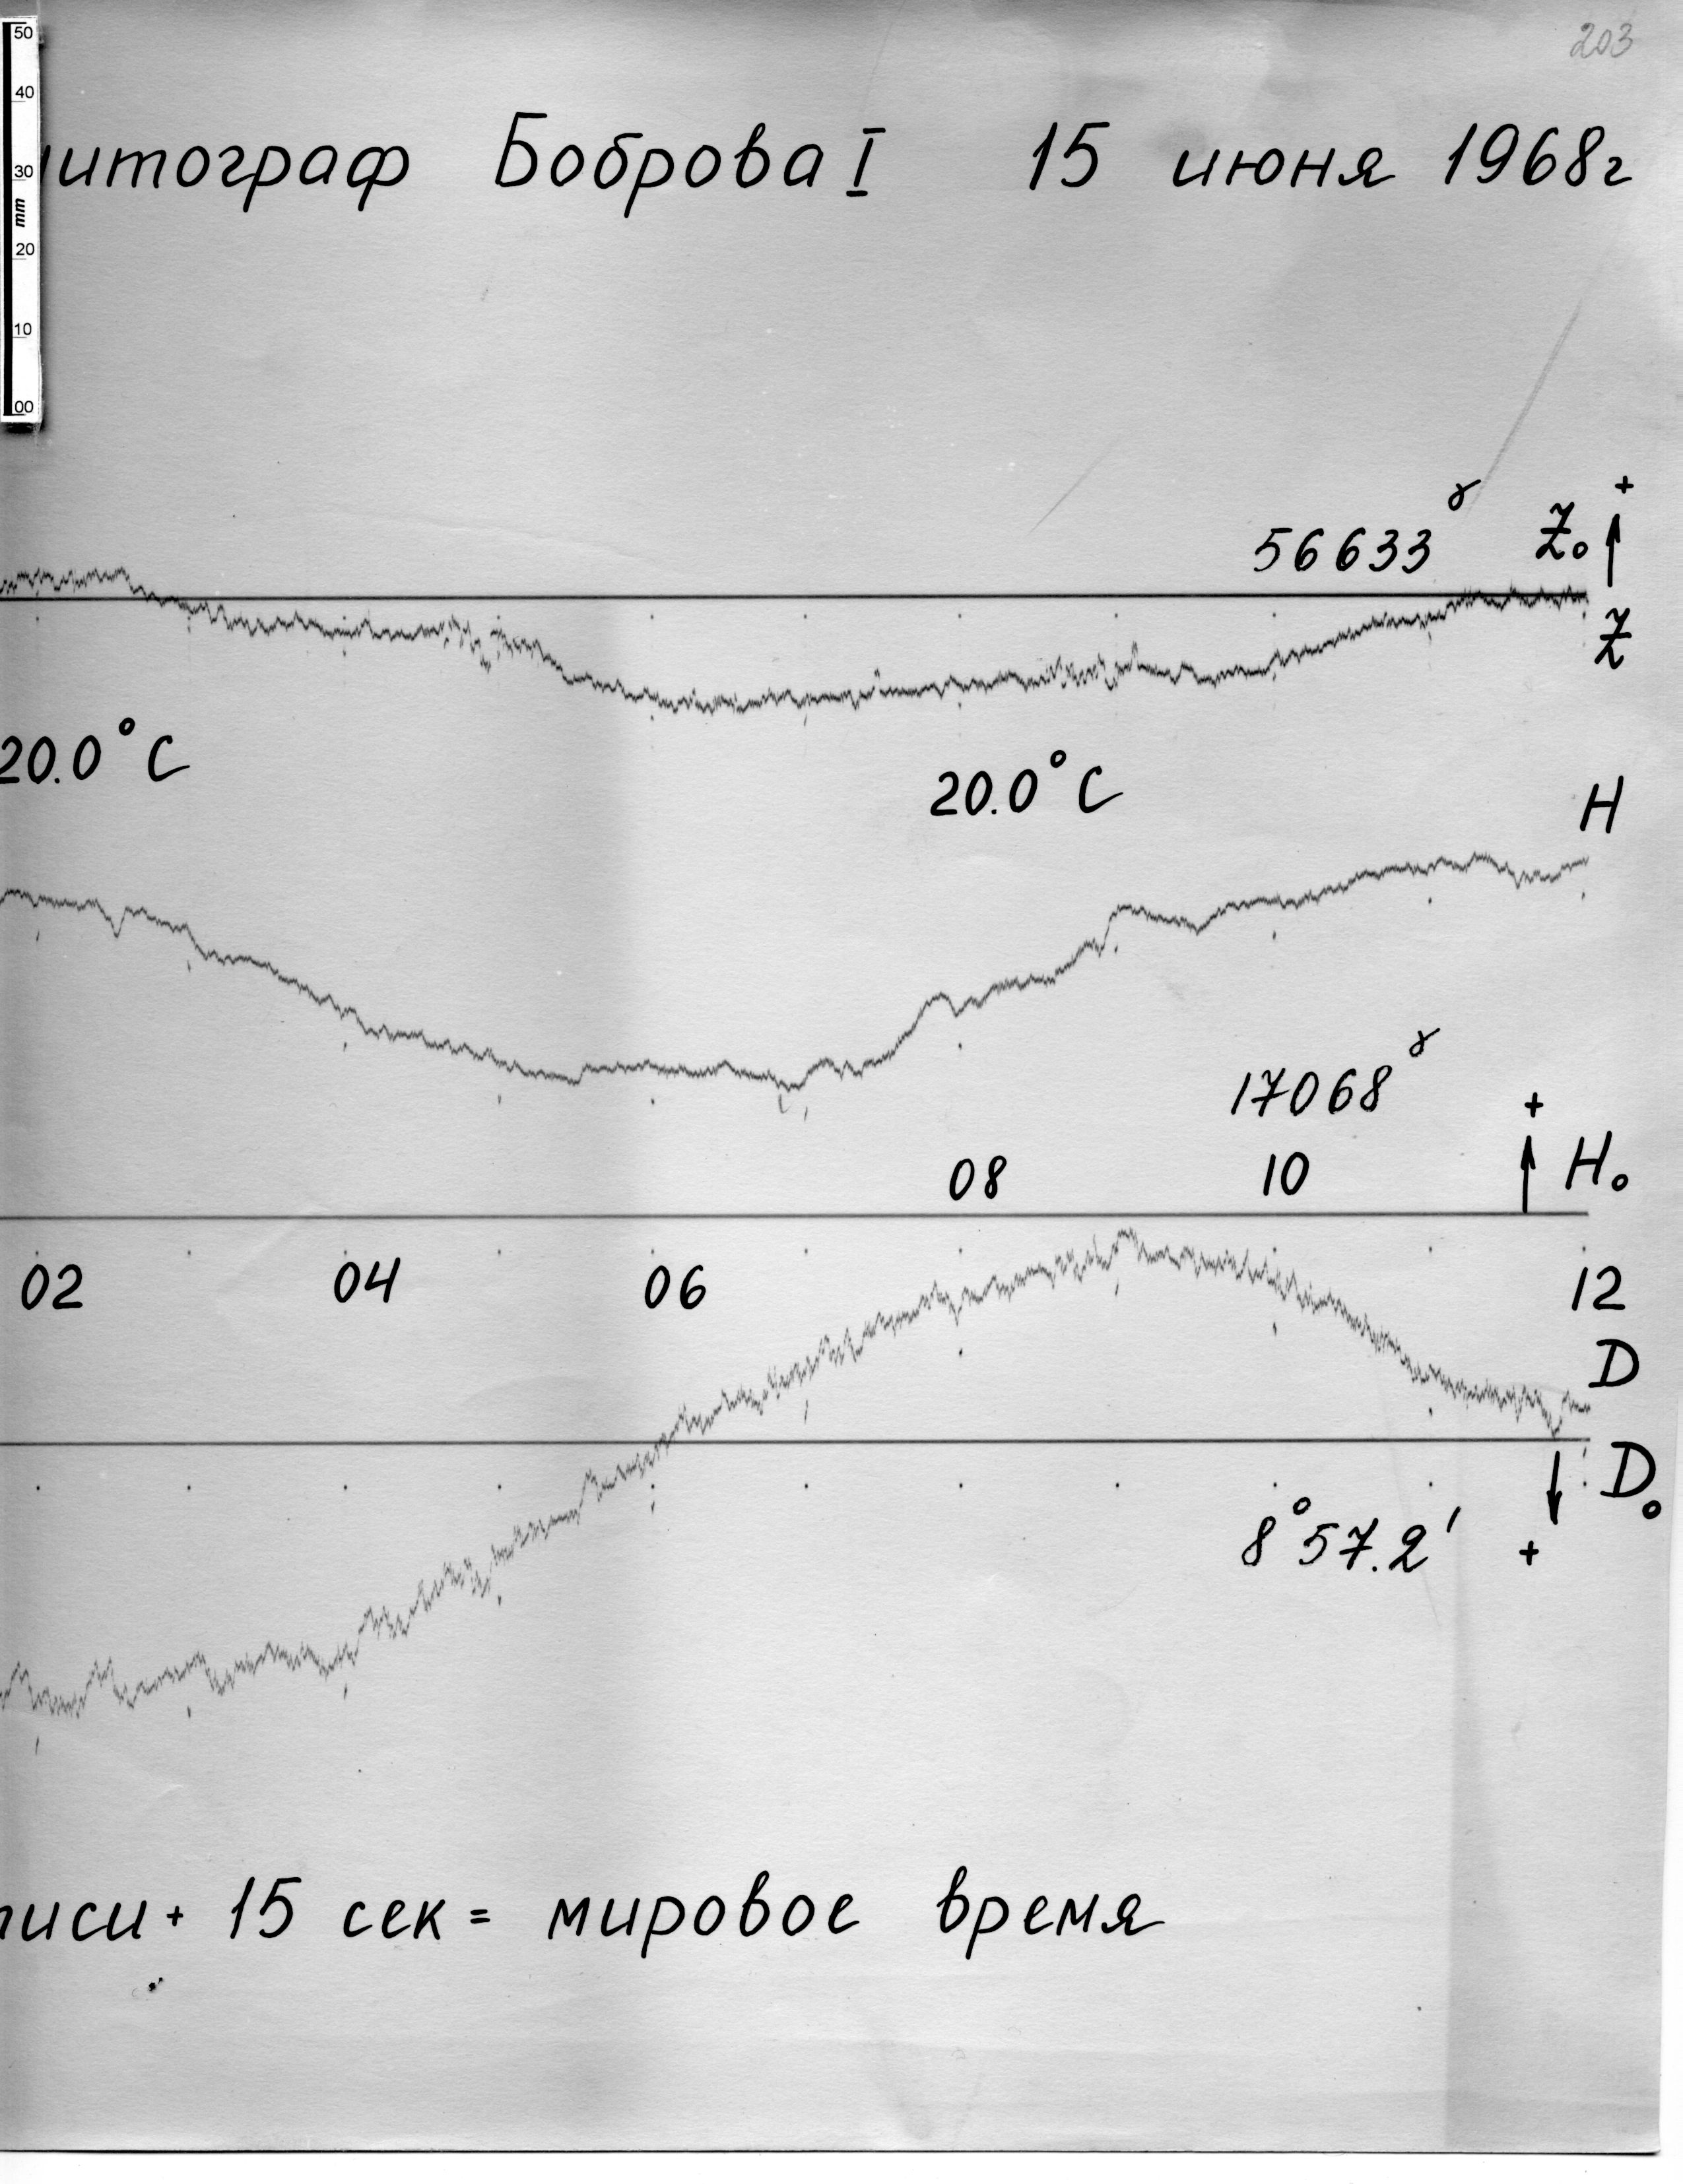 203
50
40
30
mm
20
10
00
нитограф Боброва I 15 июня 1968г
56633 γ Z₀ +
Z
20.0°C
20.0°C
H
17068 γ +
08 10 H₀
02 04 06 12
D
D₀
8°57.2' +
писи + 15 сек = мировое время